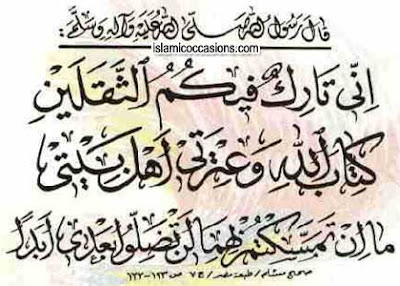 قال رسول الله صلّى الله عليه وآله وسلّم:
islamicoccasions.com
اِنّى تارِكٌ فيكُمُ الثَّقَلَينِ
كِتابَ اللهِ وَعِترَتى اَهلَ بَيتى
ما اِن تَمَسَّكتُم بِهِما لَن تَضِلّوا بَعدى اَبَدًا
صحيح مسلم / طبعة مصر / ج ٧ ص